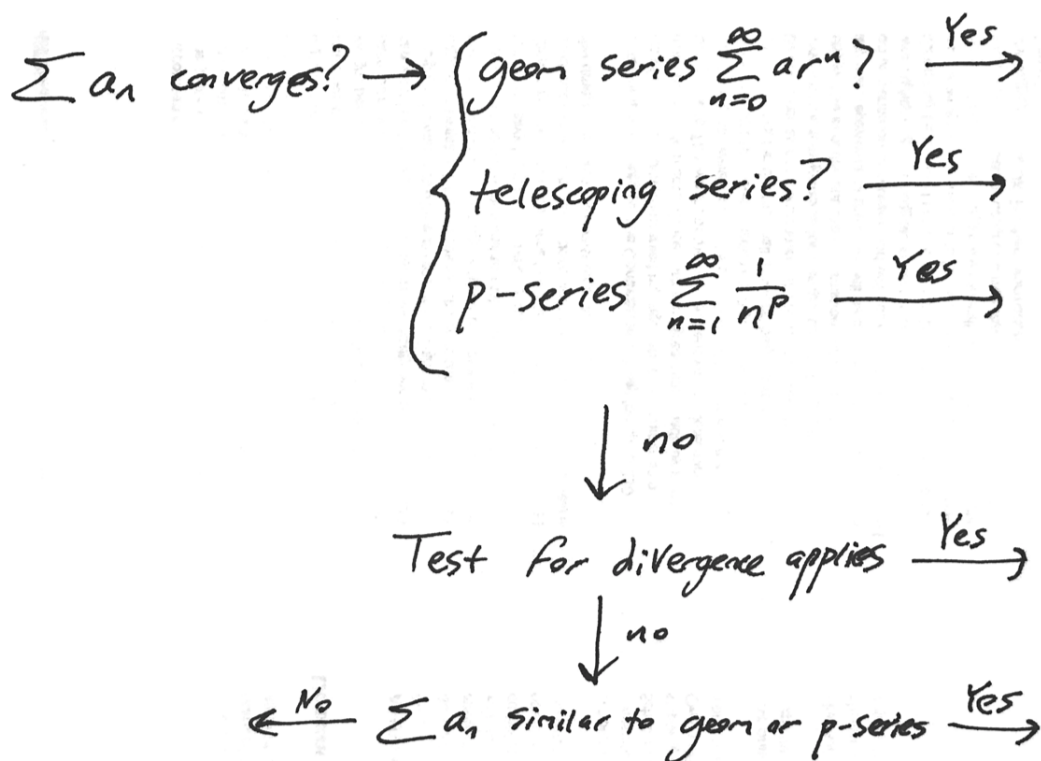 ∑ aₙ converges? → { geom series ∑_{n=0}^{∞} arⁿ? Yes →
telescoping series? Yes →
p-series ∑_{n=1}^{∞} 1/n^p Yes →
↓ no
Test for divergence applies Yes →
↓ no
← No ∑ aₙ similar to geom or p-series Yes →